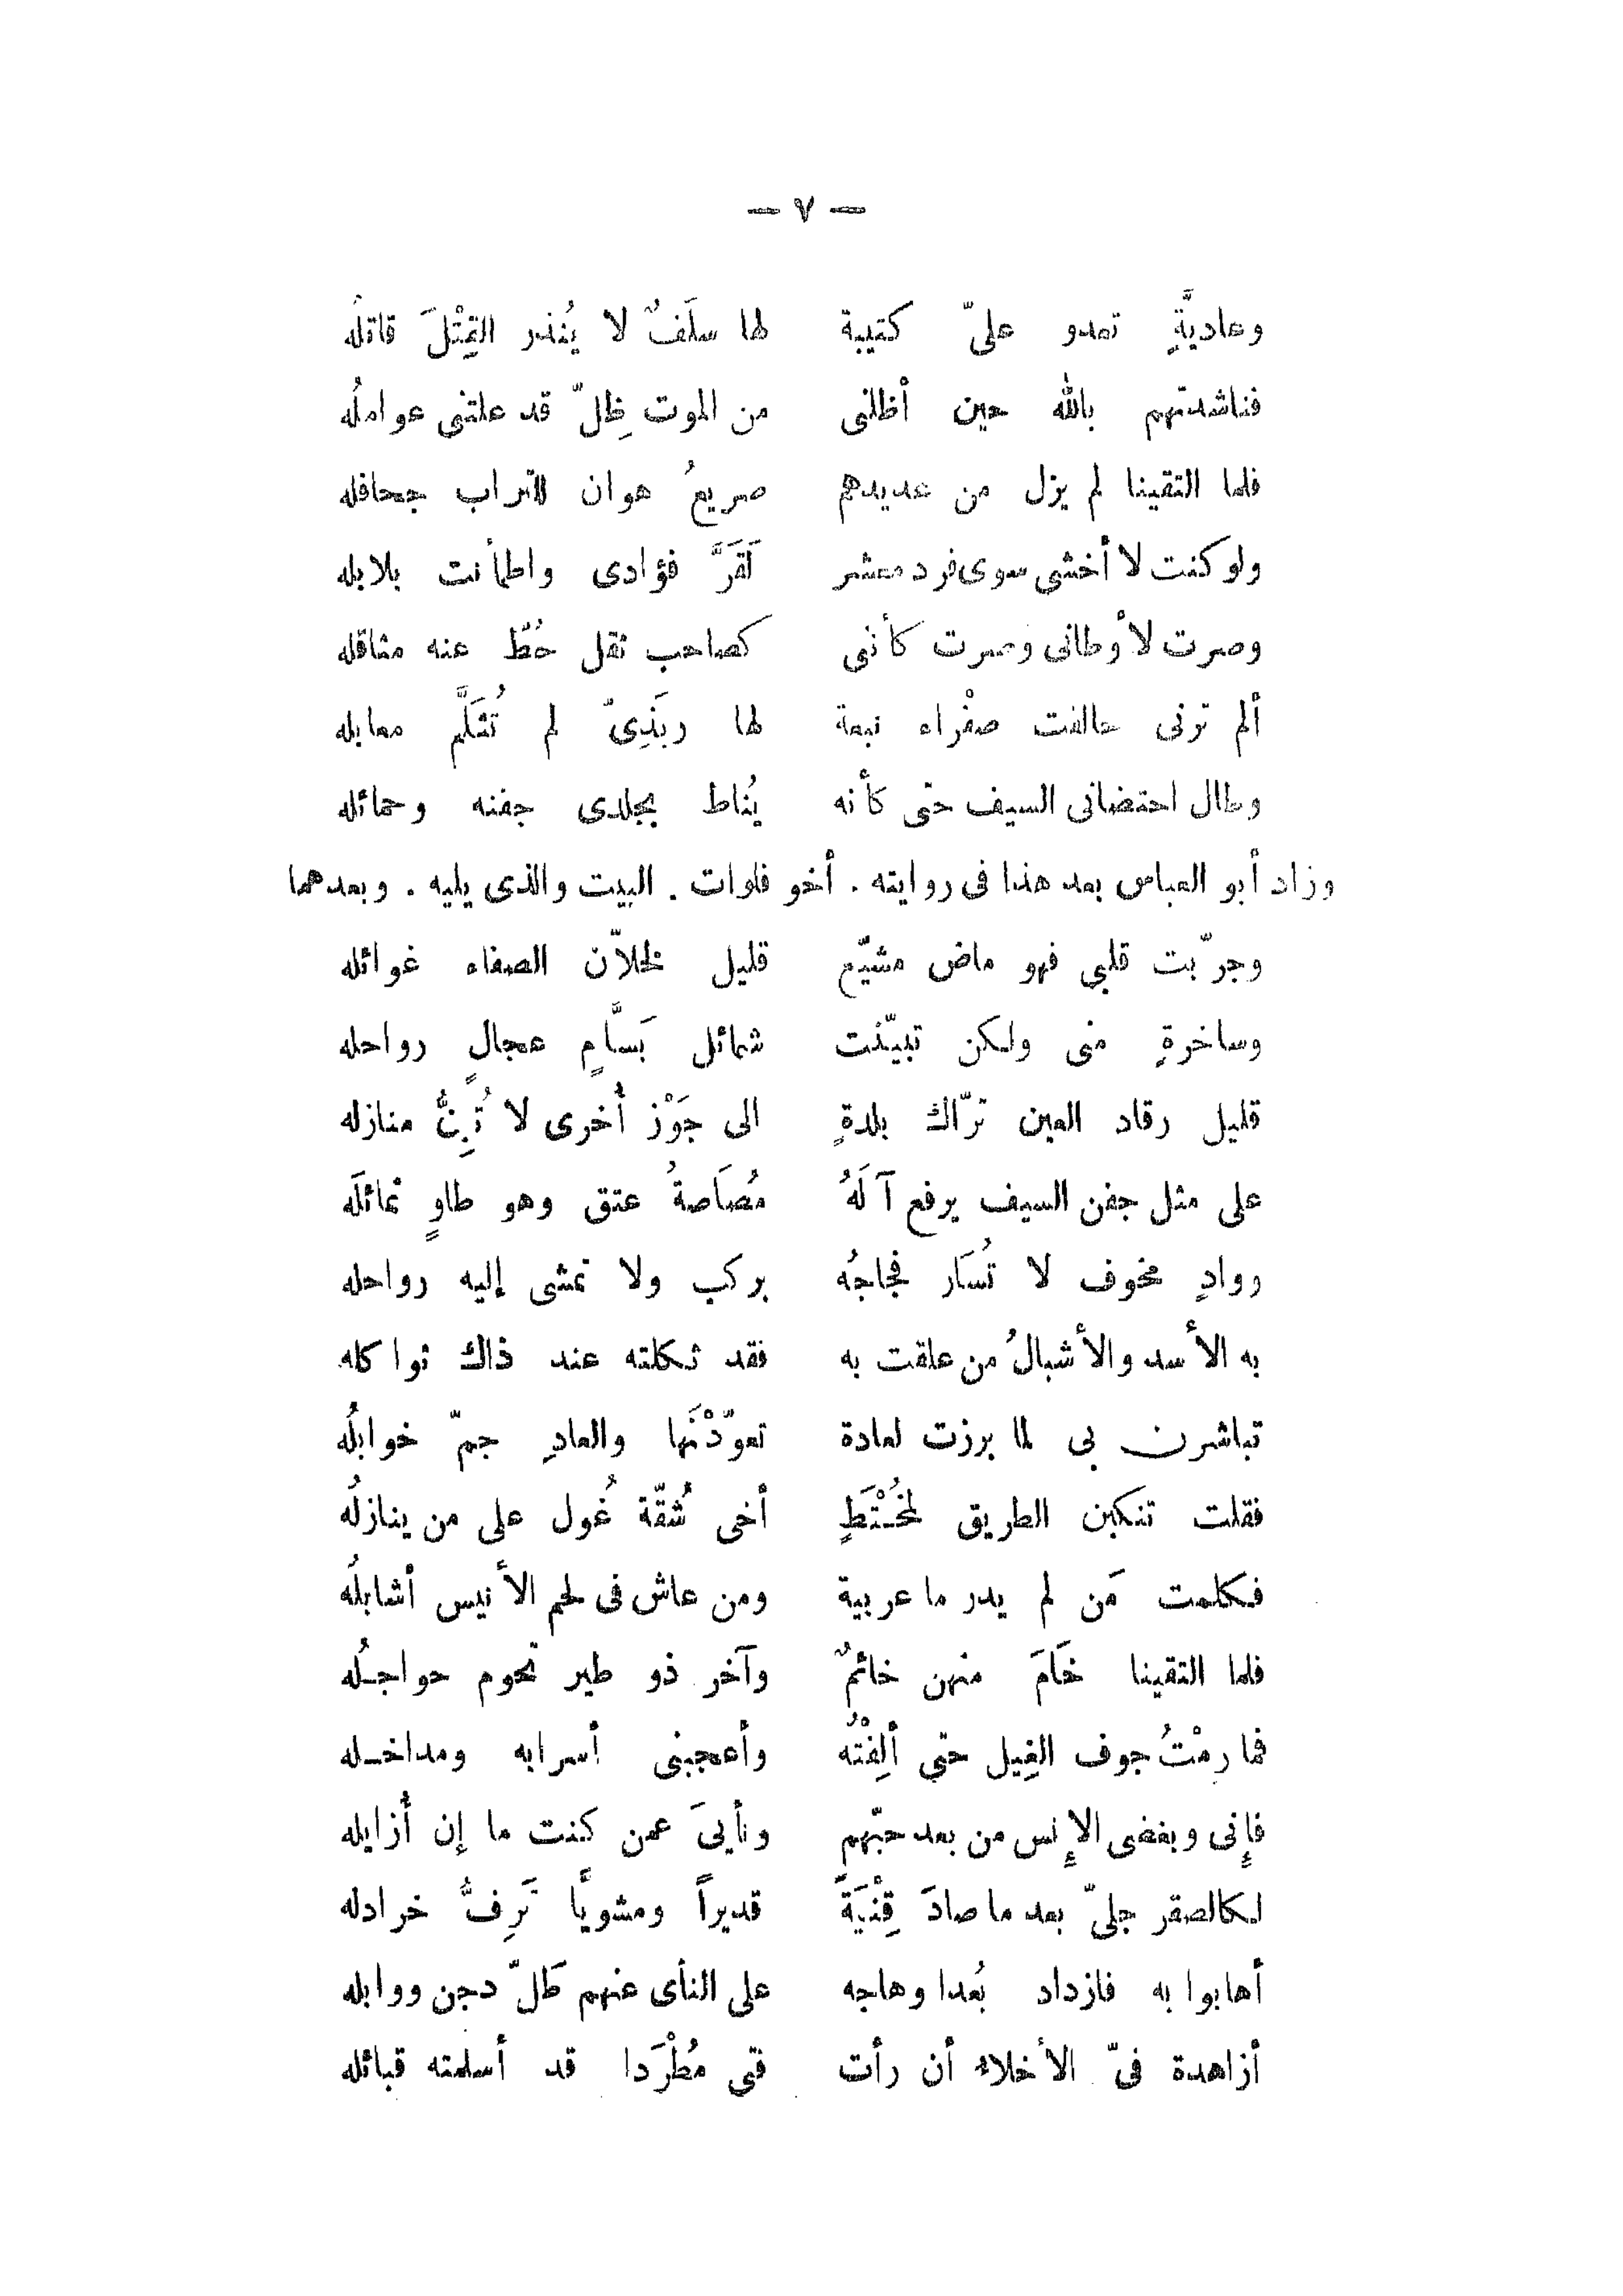 — ٧ —
وعاديَّةٍ تعدو علىّ كتيبة لها سلَفٌ لا يُنذر القِتْلَ قاتلُه
فناشدتهم بالله حين أظلنى من الموت ظِلّ قد علتنى عواملُه
فلما التقينا لم يزل من عديدهم صريعُ هوان للتراب جحافله
ولو كنت لا أخشى سوى فرد معشر لَقَرَّ فؤادى واطمأنت بلابله
وصرت لأوطانى وصرت كأنى كصاحب ثقل حُطّ عنه مثاقله
ألم ترنى حالفت صفْراء نبعة لها ربَذِىّ لم تُثَلَّم معابله
وطال احتضانى السيف حتى كأنه يُناط بجلدى جفنه وحمائله
وزاد أبو العباس بعد هذا فى روايته . أخو فلوات . البيت والذى يليه . وبعدهما
وجرّبت قلبى فهو ماض مشيّع قليل لخلاّن الصفاء غوائله
وساخرةٍ منى ولكن تبيّنت شمائل بَسَّامٍ عجالٍ رواحله
قليل رقاد العين ترّاك بلدةٍ الى جَوْز أُخرى لا تُبِنُّ منازله
على مثل جفن السيف يرفع آلَهُ مُصَاصةُ عتق وهو طاوٍ ثمائلَه
ووادٍ مخوف لا تُسَار فجاجُه بركب ولا تمشى إليه رواحله
به الأسد والأشبالُ من علقت به فقد ثكلته عند ذاك ثواكله
تباشرن بى لما برزت لعادة تعوّدْنَها والعادِ جمّ خوابلُه
فقلت تنكبن الطريق لمُخْتَطٍ أخى شُقّة غُول على من ينازلُه
فكلمت مَن لم يدر ما عربية ومن عاش فى لحم الأنيس أشابلُه
فلما التقينا خَامَ منهن خائمٌ وآخر ذو طير تحوم حواجلُه
فما رمْتُ جوف الغِيل حتى ألِفْتُه وأعجبنى أسرابه ومداخله
فإِنى وبغضى الإِنس من بعد حبّهم ونأيىَ عمن كنت ما إن أُزايله
لكالصقر جلىّ بعد ما صادَ قِنْيَةً قديراً ومشويًّا تَرِفُّ خرادله
أهابوا به فازداد بُعدا وهاجه على النأى عنهم طَلّ دجن ووابله
أزاهدة فىّ الأخلاء أن رأت فتى مُطْرَدا قد أسلمته قبائله